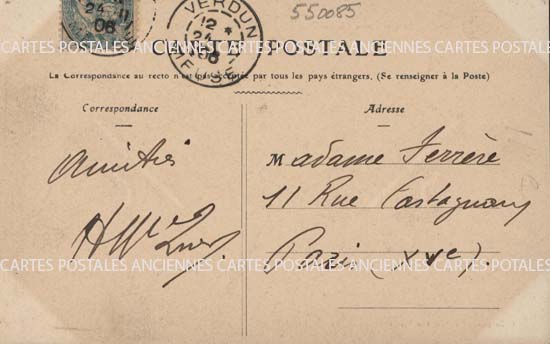 550085
VERDUN
MEUSE
12 *
24
06
24 11
06
CARTE POSTALE
La Correspondance au recto n'est pas acceptée par tous les pays étrangers. (Se renseigner à la Poste)
Correspondance
Adresse
Amitiés
Madame Ferrère
11 Rue Castagnary
Paris (XVe).
CARTES POSTALES ANCIENNES CARTES POSTALES ANCIENNES CARTES POSTALES